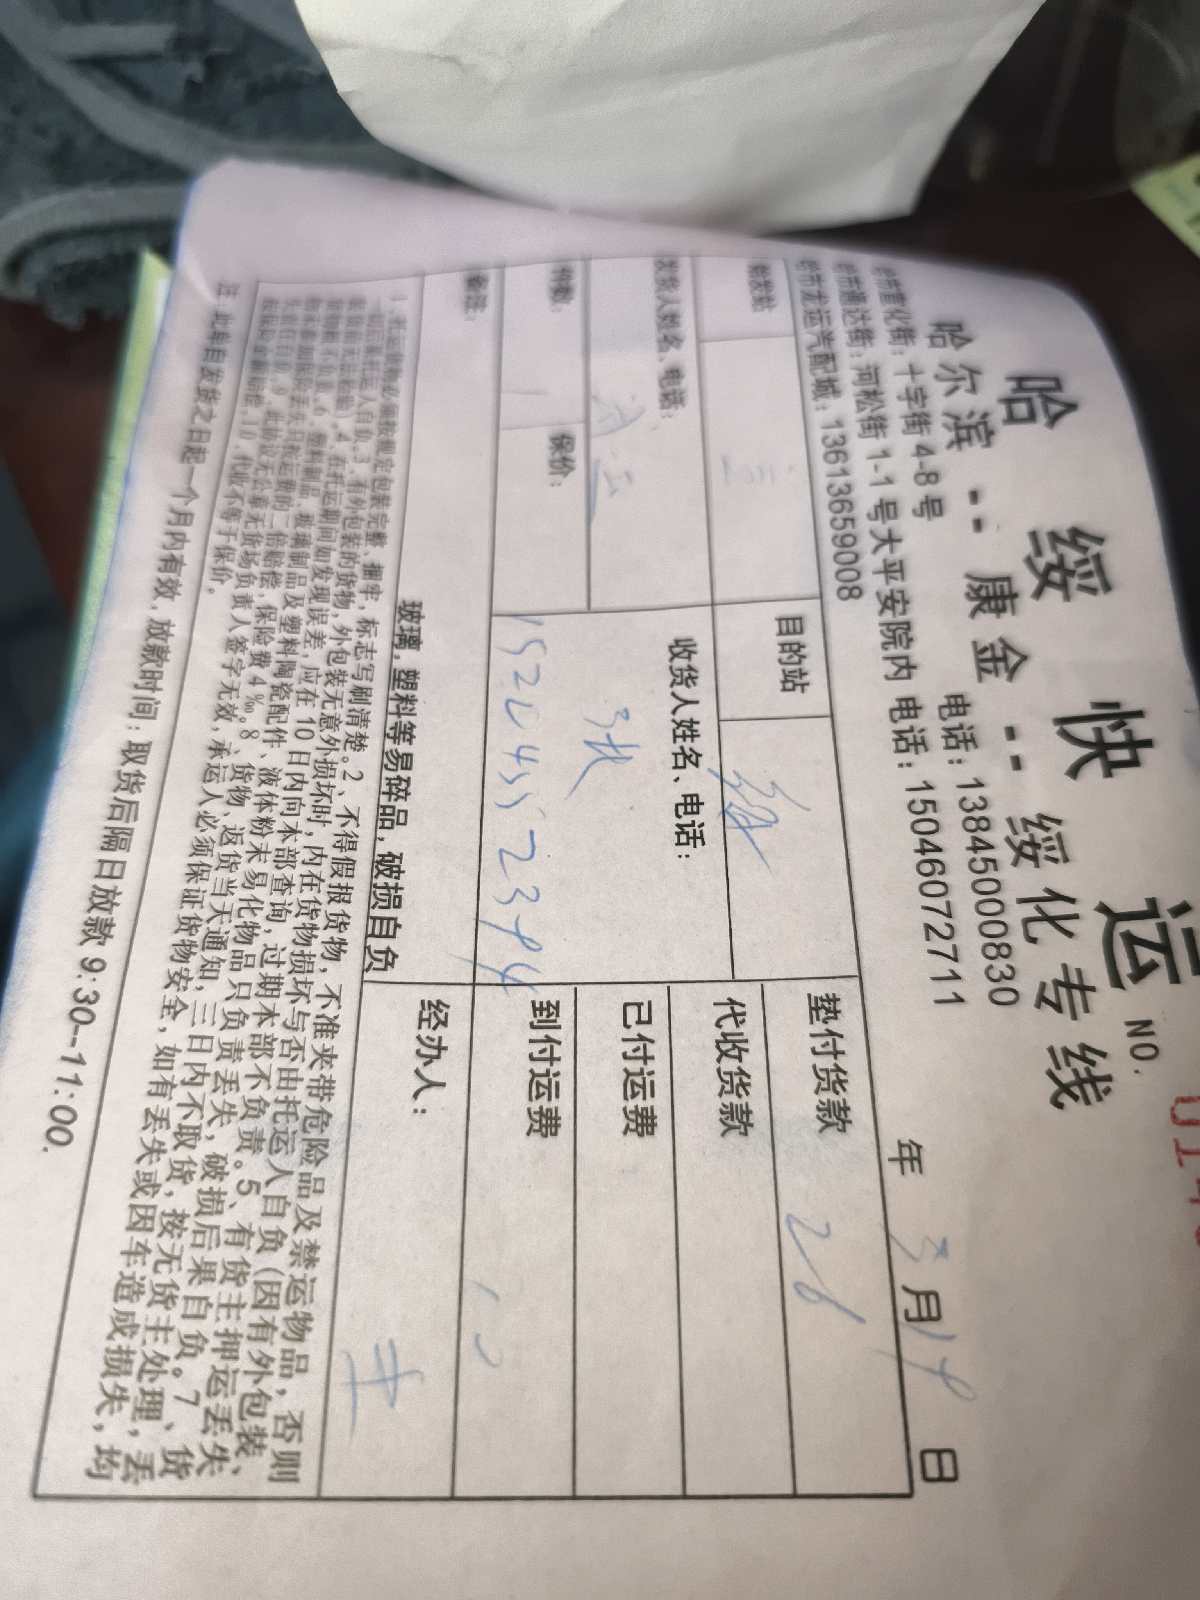 哈绥快运 NO.
哈尔滨--康金--绥化专线
十字街4-8号 电话：13845000830
通达街：河松街1-1号大平安院内 电话：15046072711
龙运汽配城：13613659008
年 3月14日
始发站
目的站 绥
垫付货款 26
发货人姓名、电话：
收货人姓名、电话：
代收货款
张
已付运费
件数：
保价：
到付运费
备注：
玻璃，塑料等易碎品，破损自负
经办人：
1、托运货物必须按规定包装完整、捆牢，标志写刷清楚。2、不得假报货物，不准夹带危险品及禁运物品，否则
一切后果托运人自负。3、有外包装的货物，外包装无意外损坏时，内在货物损坏与否由托运人自负（因有外包装、
4、在托运期间如发现误差，应在10日内向本部查询，过期本部不负责。5、有货主押运丢失
6、塑料制品、玻璃制品及塑料陶瓷配件、液体粉末易化物品只负责丢失，破损后果自负。7、货
丢失日按运费的二倍赔偿，保险费4‰。8、货物、返货当天通知，三日内不取货，按无货主处理，丢
9、此协议无公章无货场负责人签字无效，承运人必须保证货物安全，如有丢失或因车造成损失，均
10、代收不等于保价。
注：此单自发货之日起一个月内有效，放款时间：取货后隔日放款9:30--11:00.